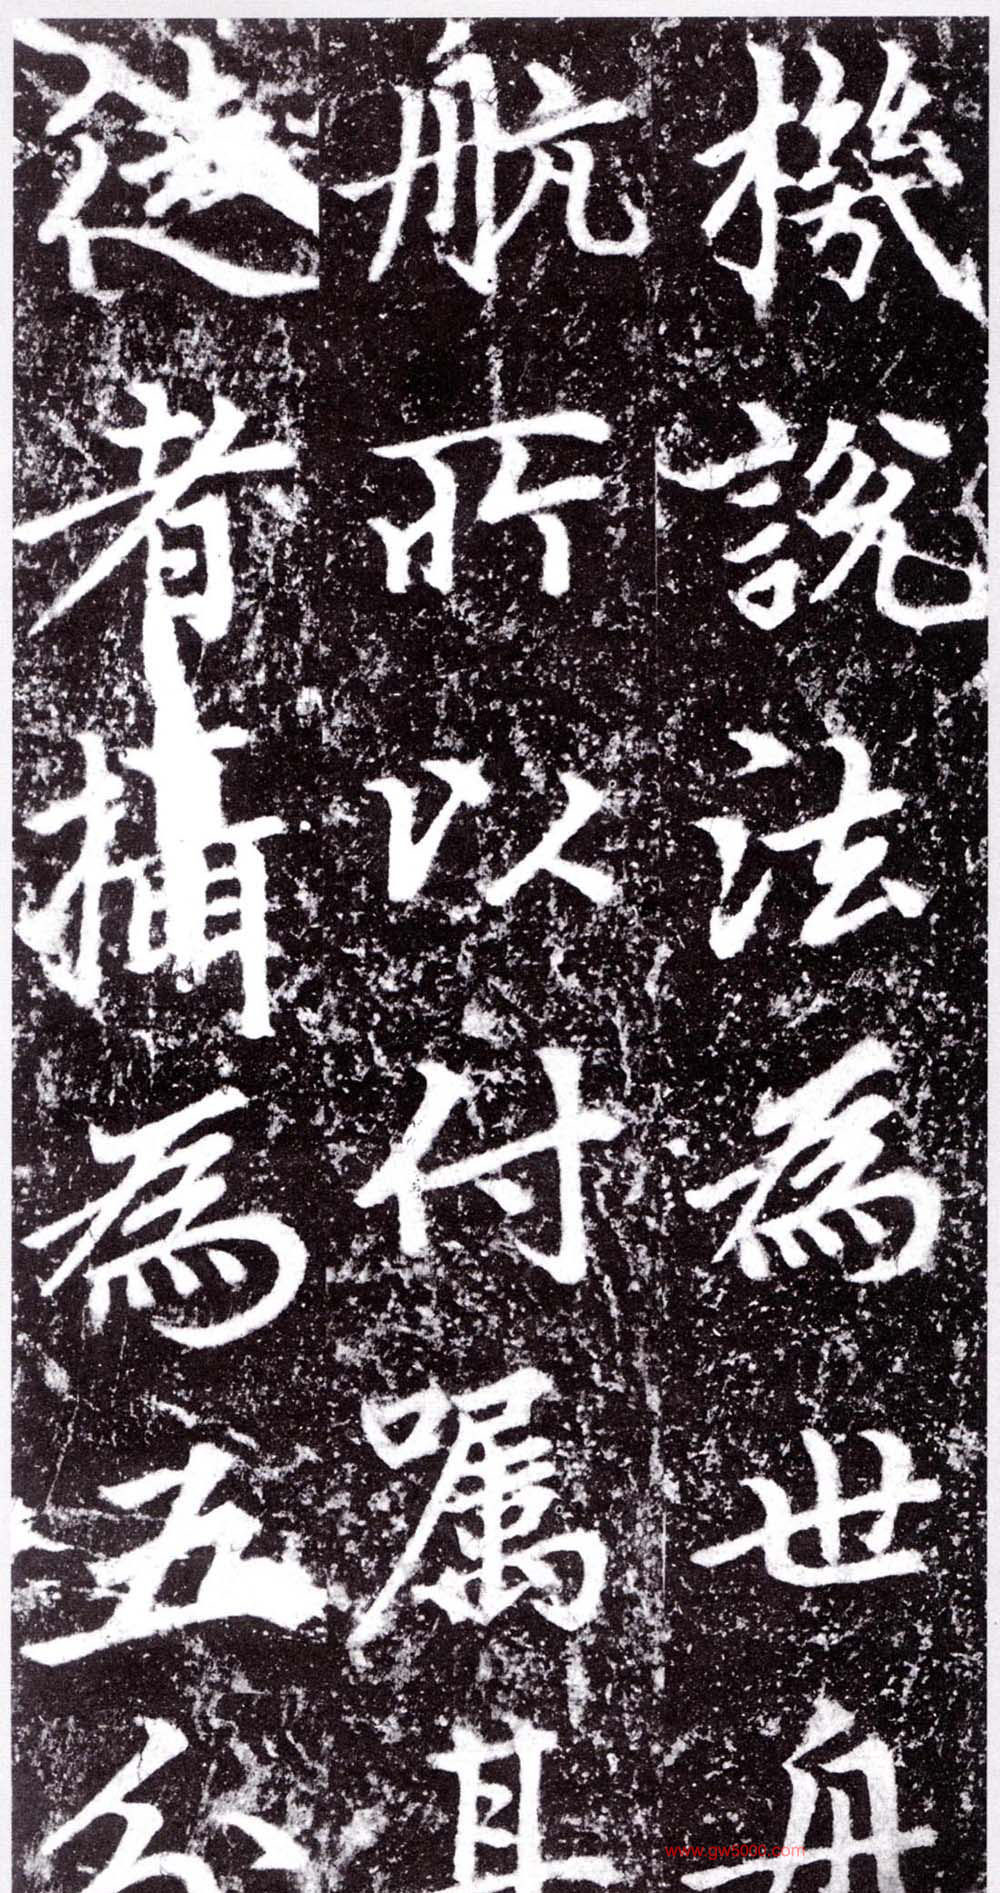 機說法為世舟
航所以付囑其
達者攝為五分
www.gw5000.com